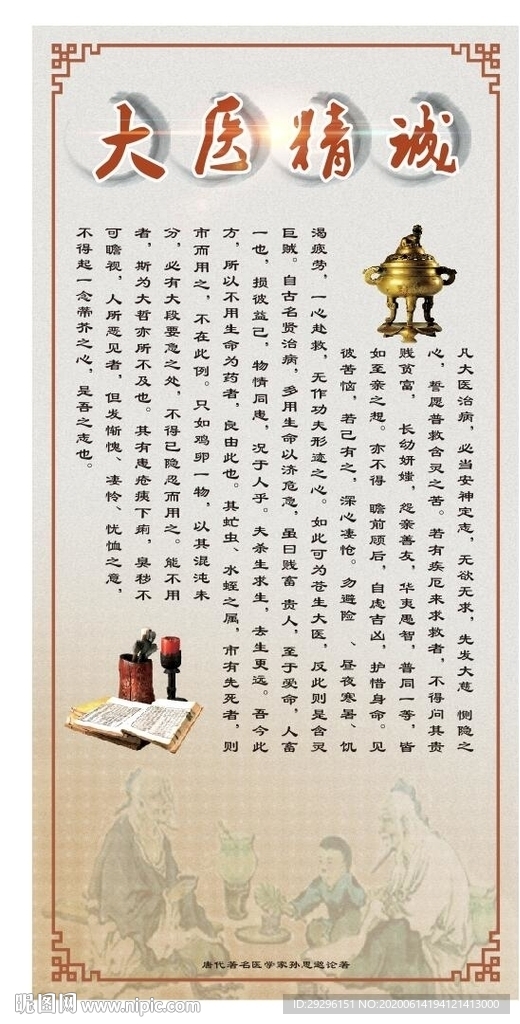 大医精诚
凡大医治病，必当安神定志，无欲无求，先发大慈 恻隐之
心，誓愿普救含灵之苦。若有疾厄来求救者，不得问其贵
贱贫富，长幼妍媸，怨亲善友，华夷愚智，普同一等，皆
如至亲之想。亦不得 瞻前顾后，自虑吉凶，护惜身命。见
彼苦恼，若己有之，深心凄怆。勿避险 、昼夜寒暑、饥
渴疲劳，一心赴救，无作功夫形迹之心。如此可为苍生大医，反此则是含灵
巨贼。自古名贤治病，多用生命以济危急，虽曰贱富 贵人，至于爱命，人畜
一也，损彼益己，物情同患，况于人乎。夫杀生求生，去生更远。吾今此
方，所以不用生命为药者，良由此也。其虻虫、水蛭之属，市有先死者，则
市而用之，不在此例。只如鸡卵一物，以其混沌未
分，必有大段要急之处，不得已隐忍而用之。能不用
者，斯为大哲亦所不及也。其有患疮痍下痢，臭秽不
可瞻视，人所恶见者，但发惭愧、凄怜、忧恤之意，
不得起一念蒂芥之心，是吾之志也。
唐代著名医学家孙思邈论著
昵图网 www.nipic.com
ID:29296151 NO:20200614194121413000